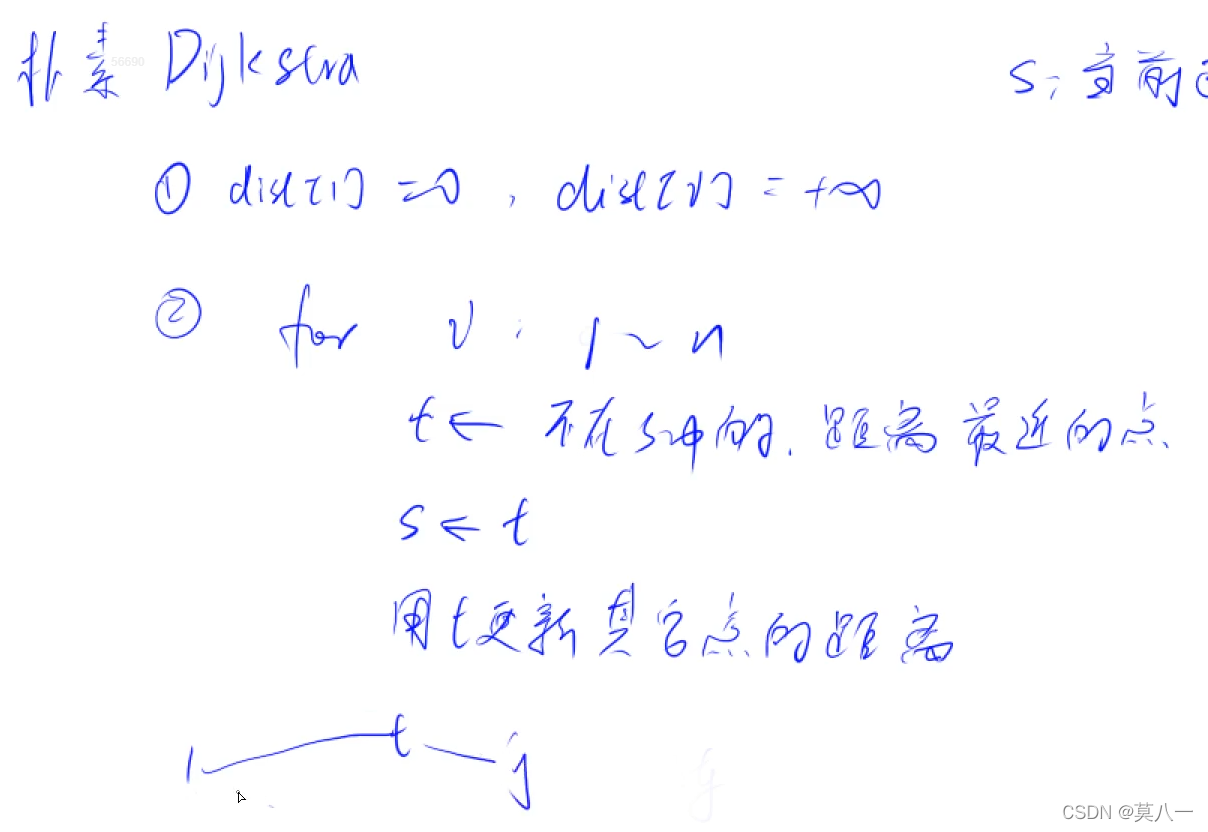 朴素 Dijkstra
56690
s: 当前已
① dist[1] = 0, dist[i] = +∞
② for i: 1 ~ n
t ← 不在s中的, 距离最近的点
s ← t
用t更新其它点的距离
1 t j
CSDN @莫八一